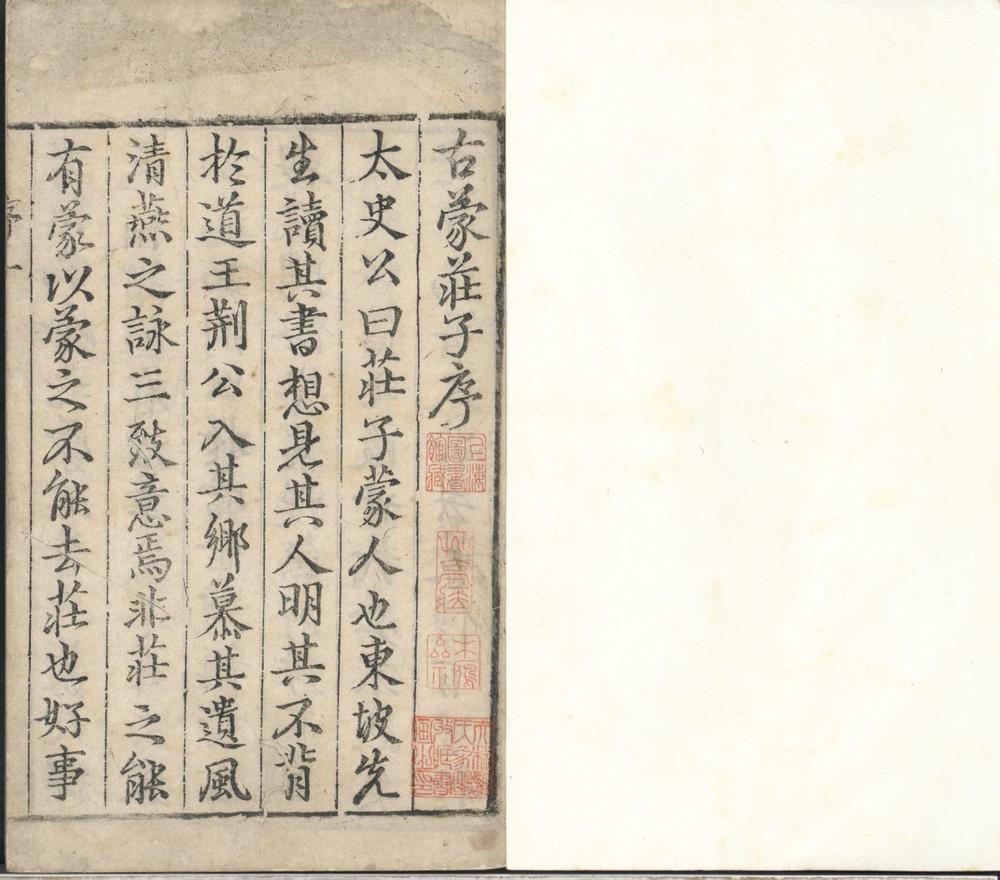 古蒙莊子序
太史公曰莊子蒙人也東坡先
生讀其書想見其人明其不背
於道王荆公入其鄉慕其遺風
清燕之詠三致意焉非莊之能
有蒙以蒙之不能去莊也好事
序 一
上海圖書館藏